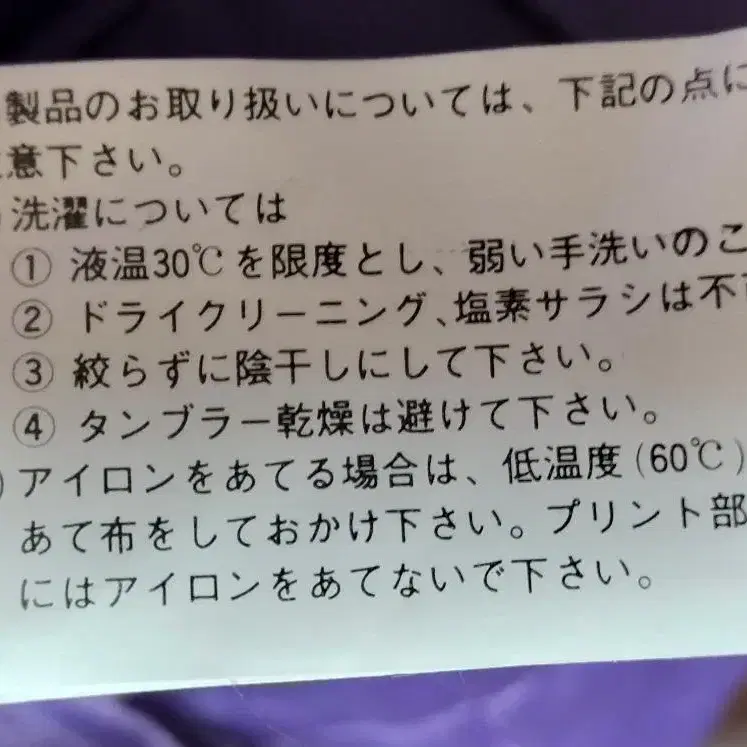 製品のお取り扱いについては、下記の点に
意下さい。
洗濯については
① 液温30℃を限度とし、弱い手洗いのこ
② ドライクリーニング、塩素サラシは不
③ 絞らずに陰干しにして下さい。
④ タンブラー乾燥は避けて下さい。
)アイロンをあてる場合は、低温度(60℃)
あて布をしておかけ下さい。プリント部
にはアイロンをあてないで下さい。